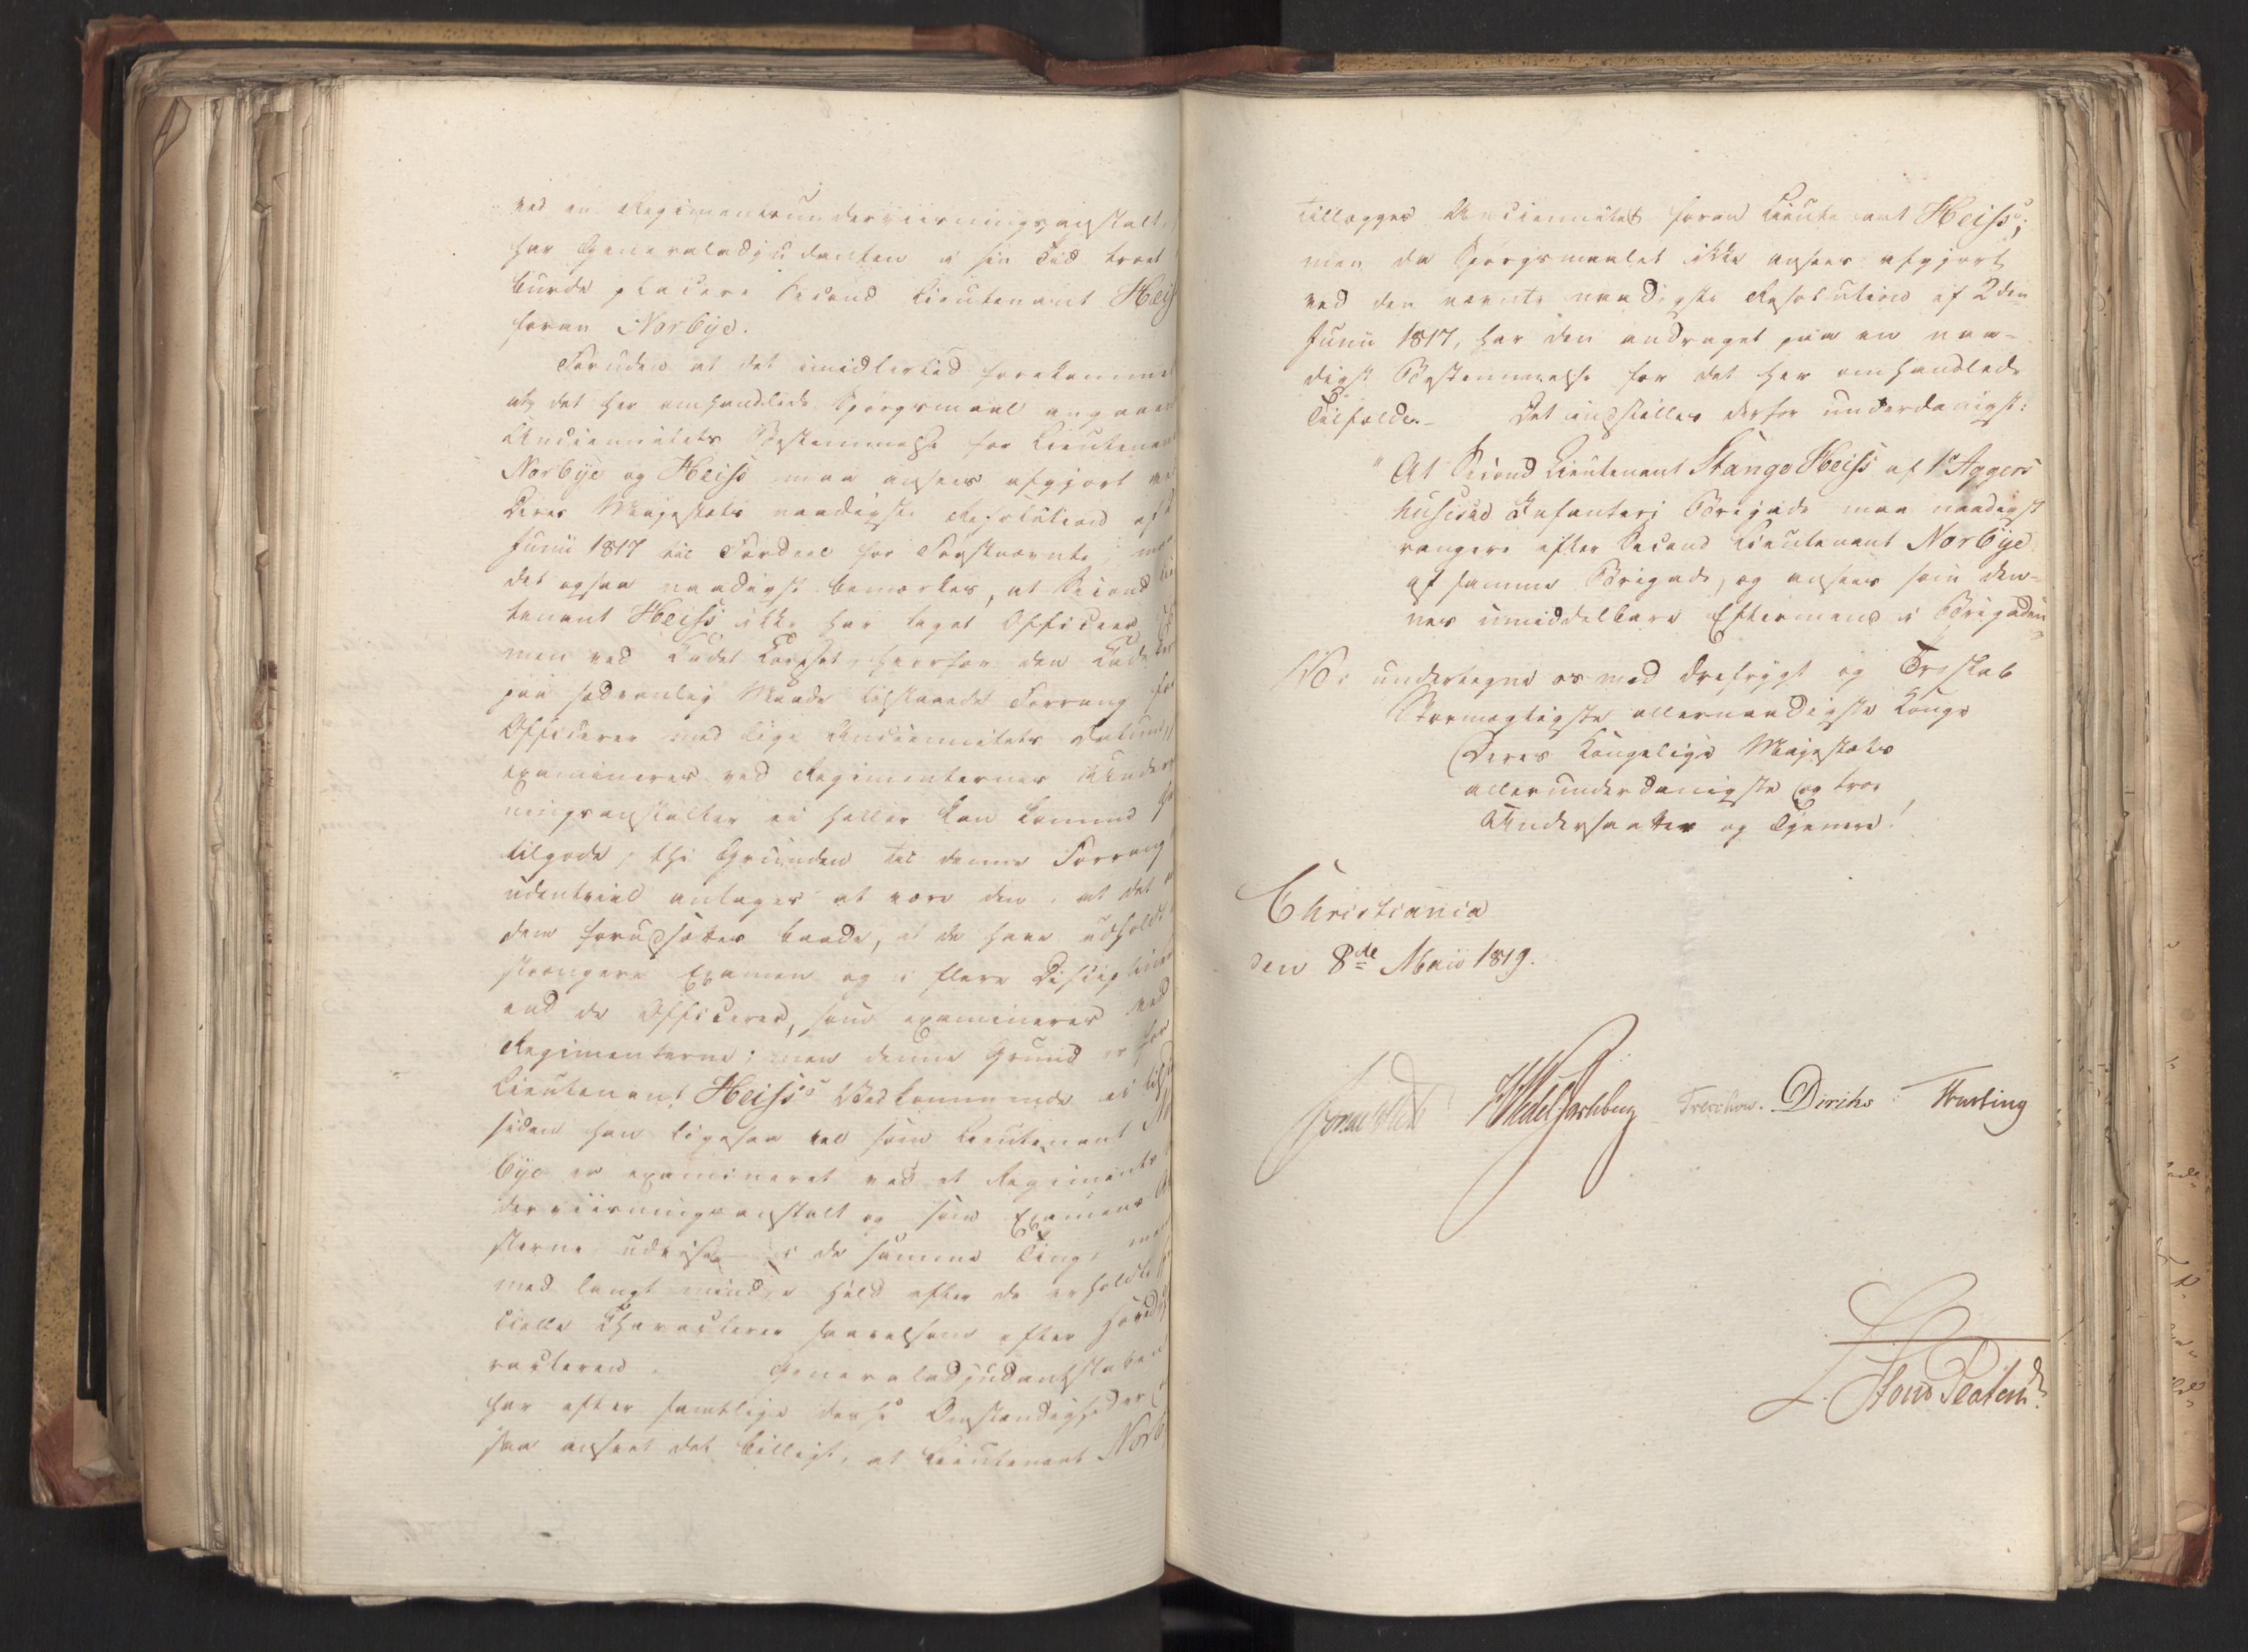 ved en Regimentsunderviisningsanstalt,
har Generaladjudanten i sin Tid troet
burde placere Second Lieutenant Heis
foran Norbye.
Foruden at det imidlertid forekommer
at det her omhandlede Spörgsmaal angaaen
Anciennitets Bestemmelse for Lieutenan
Norbye og Heiss maa ansees afgjort ve
Deres Majestæts naadigste Resolution af 2
Junii 1817 til Fordeel for Förstnævnte, maa
det ogsaa naadigst bemærkes, at Second Lieu
tenant Heiss ikke har taget Officeers Ex
men ved Cadet Corpset, hvorfor den Cadetter
paa sædvanlig Maade tilstaaede Forrang for
Officerer med lige Anciennitets Datum,
examineres ved Regimenternes Underv
ningsanstalter ei heller kan komme ham
tilgode; thi Grunden til denne Forrang
udentvivl antages at være den, at det
dem forudsættes baade, at de have udholdt
strængere Examen og i flere Discipliner
end de Officerer, som examineres ved
Regimenterne; men denne Grund er for
Lieutenant Heiss's Vedkommende ei tilst
siden han ligesaa vel som Lieutenant Nor
bye er examineret ved et Regiments
derviisningsanstalt og som Examens
sterne udvise i de samme Ting, men
med langt mindre Held efter de erholdte
cielle Characterer saavelsom efter Hoved
racteren. Generaladjudantstaben
har efter samtlige disse Omstændigheder
saa anseet det billigt, at Lieutenant Norby
tillægges Anciennitet foran Lieutenant Heiss;
men da Spörgsmaalet ikke ansees afgjort
ved den nævnte naadigste Resolution af 2den
Junii 1817, har den andraget paa en naa-
digst Bestemmelse for det her omhandlede
Tilfælde. Det indstilles derfor underdanigst:
"At Second Lieutenant Stange Heiss af 1e Aggers
husiske Infanteri Brigade maa naadigst
rangere efter Second Lieutenant Norbye
af samme Brigade, og ansees som den-
nes umiddelbare Eftermand i Brigaden"
Vi undertegne os med Ærefrygt og Troskab
Stormægtigste allernaadigste Konge
Deres Kongelige Majestæts
allerunderdanigste og troe
Undersaatter og Tjenere!
Christiania
den 8de Maii 1819.
Sommerhielm HWedel Jarlsberg Treschow. Diriks Fasting
L. Stoud Platou